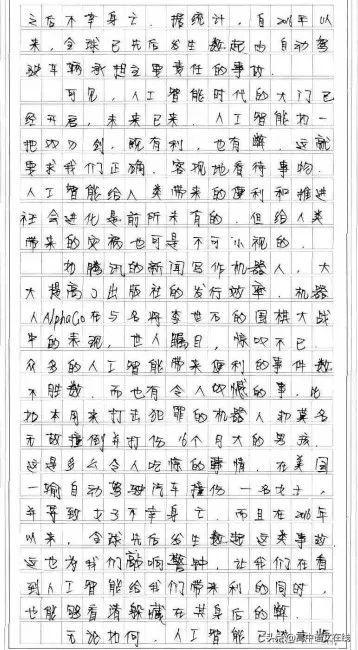 之后不幸身亡。据统计,自2016年以
来,全球已先后发生数起由自动驾
驶车辆承担主要责任的事故。
可见,人工智能时代的大门已
经开启,未来已来。人工智能如一
把双刃剑,既有利,也有弊。这就
要求我们正确、客观地看待事物。
人工智能给人类带来的便利和推进
社会进化是前所未有的,但给人类
带来的灾祸也可是不可小视的。
如腾讯的新闻写作机器人,大
大提高了出版社的发行效率。机器
人AlphaGo在与名将李世石的围棋大战
中的表现,世人瞩目,惊叹不已。
众多的人工智能带来便利的事件数
不胜数。而也有令人叹憾的事,比
如本用来打击犯罪的机器人却莫名
无故撞倒并打伤16个月大的男孩。
这是多么令人吃惊的事情。在美国
一辆自动驾驶汽车撞伤一名女士,
并导致女子不幸身亡。而且在2016年
以来,全球先后发生数起这类事故
这也为我们敲响警钟,让我们在看
到人工智能给我们带来利的同时,
也能够看清躲藏在其身后的弊。
无论如何,人工智能已
头条@高中语文在线